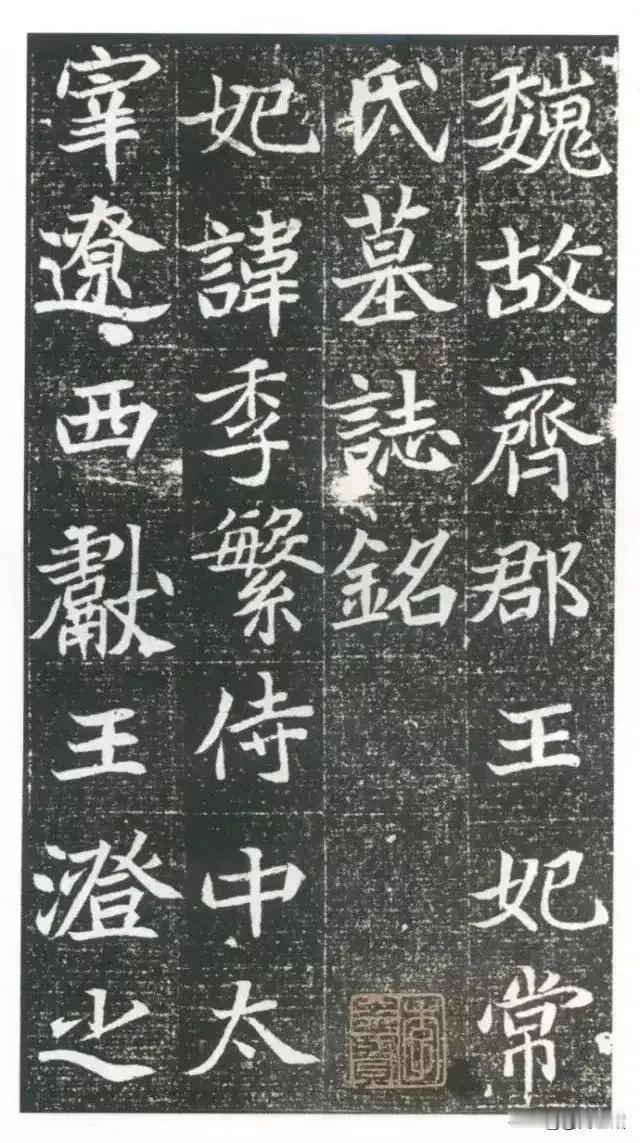 魏故齊郡王妃常
氏墓誌銘
妃諱季繁侍中太
宰遼西獻王澄之